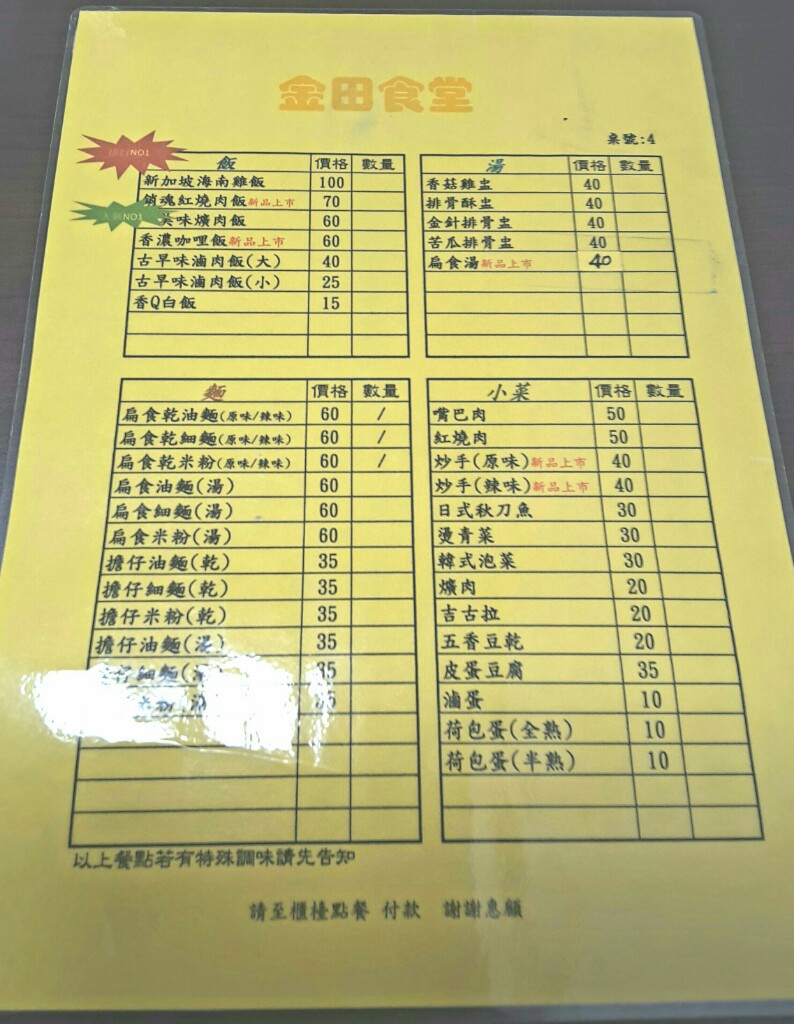 金田食堂
桌號:4
NO1
飯 價格 數量
新加坡海南雞飯 100
銷魂紅燒肉飯新品上市 70
NO1
美味爌肉飯 60
香濃咖哩飯新品上市 60
古早味滷肉飯(大) 40
古早味滷肉飯(小) 25
香Q白飯 15
湯 價格 數量
香菇雞盅 40
排骨酥盅 40
金針排骨盅 40
苦瓜排骨盅 40
扁食湯新品上市 40
麵 價格 數量
扁食乾油麵(原味/辣味) 60 /
扁食乾細麵(原味/辣味) 60 /
扁食乾米粉(原味/辣味) 60 /
扁食油麵(湯) 60
扁食細麵(湯) 60
扁食米粉(湯) 60
擔仔油麵(乾) 35
擔仔細麵(乾) 35
擔仔米粉(乾) 35
擔仔油麵(湯) 35
仔細麵(湯 35
米粉(湯 35
小菜 價格 數量
嘴巴肉 50
紅燒肉 50
炒手(原味)新品上市 40
炒手(辣味)新品上市 40
日式秋刀魚 30
燙青菜 30
韓式泡菜 30
爌肉 20
吉古拉 20
五香豆乾 20
皮蛋豆腐 35
滷蛋 10
荷包蛋(全熟) 10
荷包蛋(半熟) 10
以上餐點若有特殊調味請先告知
請至櫃檯點餐 付款 謝謝惠顧